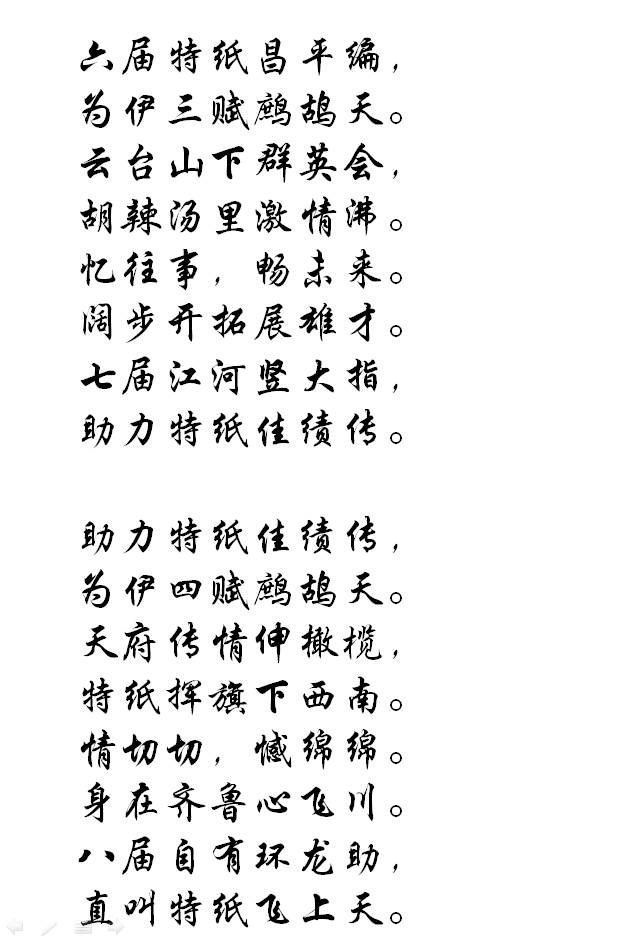 六届特纸昌平编，
为伊三赋鹧鸪天。
云台山下群英会，
胡辣汤里激情沸。
忆往事，畅未来。
阔步开拓展雄才。
七届江河竖大指，
助力特纸佳绩传。
助力特纸佳绩传，
为伊四赋鹧鸪天。
天府传情伸橄榄，
特纸挥旗下西南。
情切切，憾绵绵。
身在齐鲁心飞川。
八届自有环龙助，
直叫特纸飞上天。